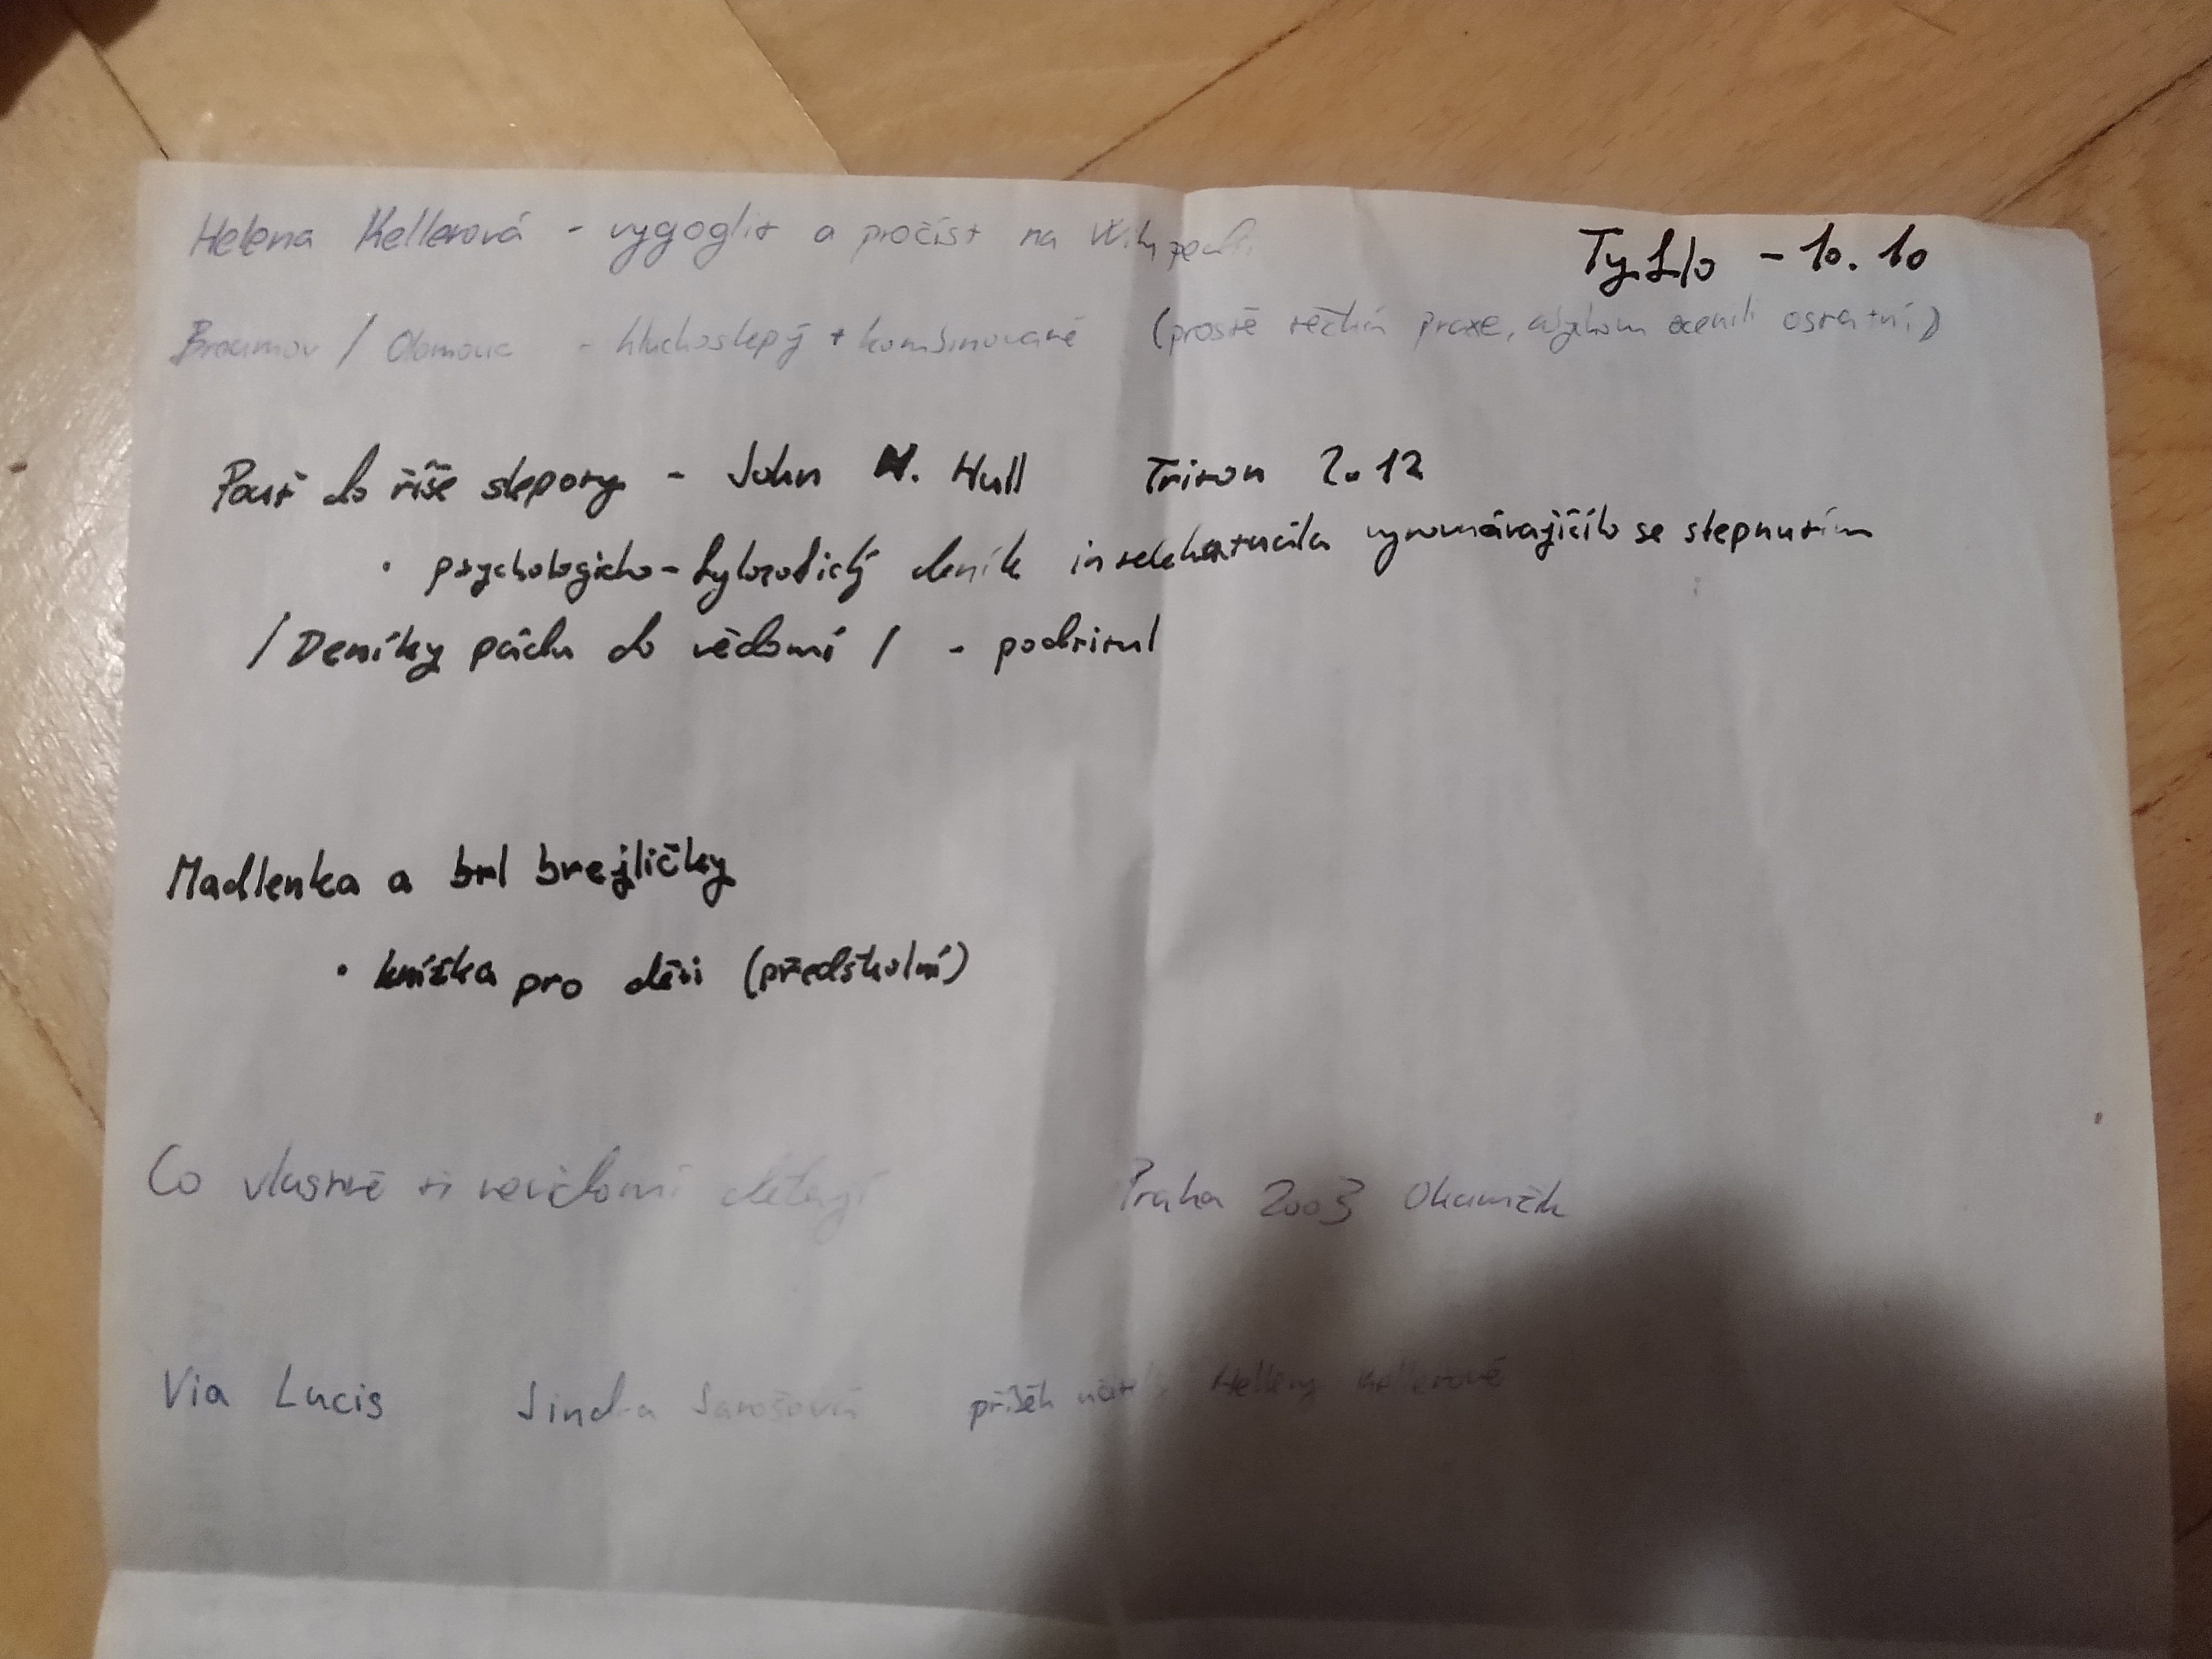 Tyflo - 10. 10
Helena Kellerová - vygoglit a pročíst na
Broumov / Olomouc - hluchoslepý + kombinované (prostě těžká praxe, ocenili ostatní)
Pouť do říše slepoty - John M. Hull Triton 2012
• psychologicko-fylozofický deník intelektuála vyrovnávajícího se slepnutím
/ Deníky pádu do vědomí / - podtitul
Madlenka a brl brejličky
• knížka pro děti (předškolní)
Co vlastně ti nevidomí dělají Praha 2003 Okamžik
Via Lucis Jindra Jarošová příběh Helleny Kellerové